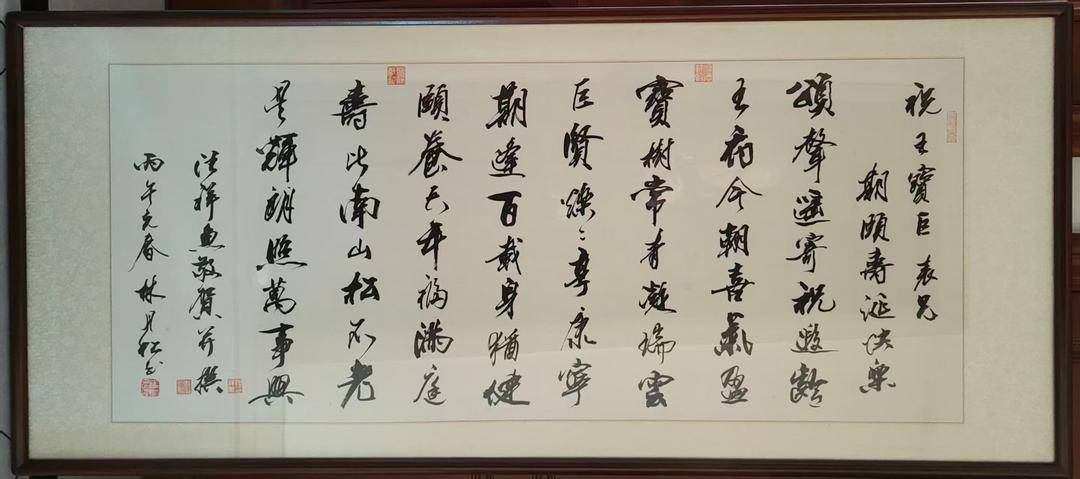 祝王寶巨表兄
期頤壽誕快樂
頌聲遥寄祝遐齡
王府今朝喜氣盈
寶樹常青凝瑞雲
巨賢燦燦享康寧
期逢百載身猶健
頤養天年福滿庭
壽比南山松不老
星輝朗照萬事興
洪祥惠敬賀并撰
丙午元春 林月松书